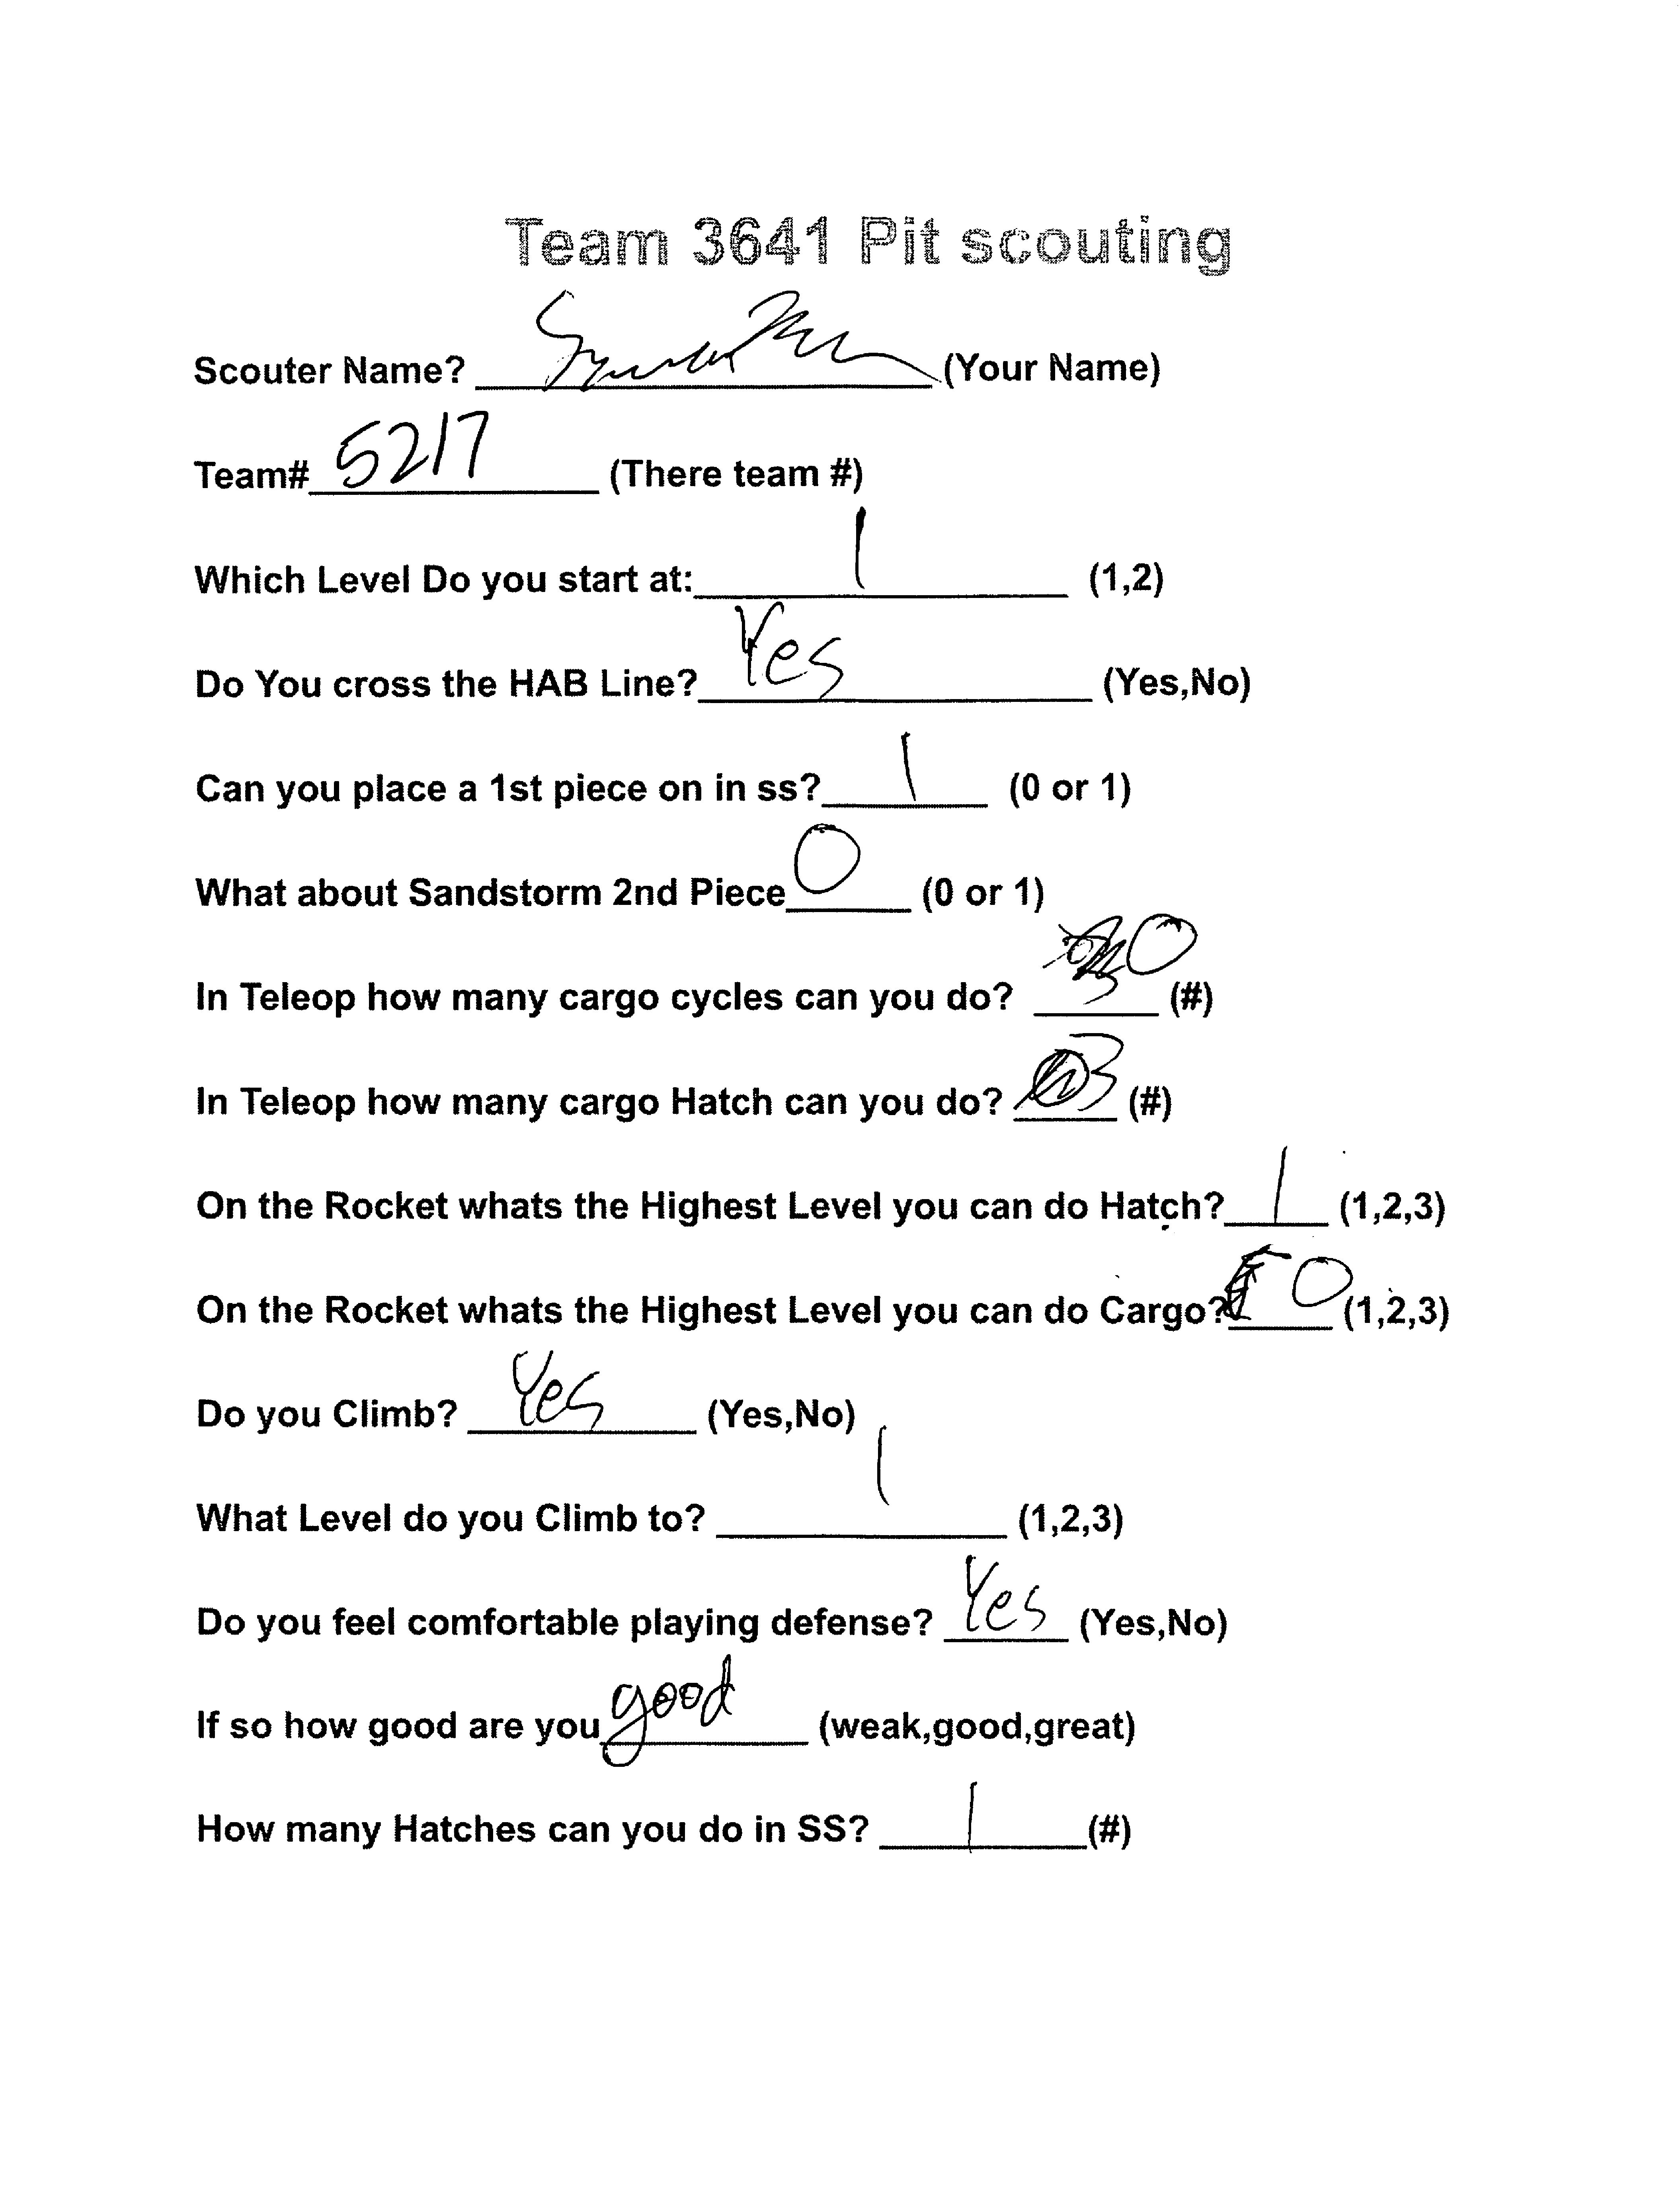 Team 3641 Pit scouting
Scouter Name? (Your Name)
Team# 5217 (There team #)
Which Level Do you start at: 1 (1,2)
Do You cross the HAB Line? Yes (Yes,No)
Can you place a 1st piece on in ss? 1 (0 or 1)
What about Sandstorm 2nd Piece 0 (0 or 1)
In Teleop how many cargo cycles can you do? 0 (#)
In Teleop how many cargo Hatch can you do? 3 (#)
On the Rocket whats the Highest Level you can do Hatch? 1 (1,2,3)
On the Rocket whats the Highest Level you can do Cargo? 0 (1,2,3)
Do you Climb? Yes (Yes,No)
What Level do you Climb to? 1 (1,2,3)
Do you feel comfortable playing defense? Yes (Yes,No)
If so how good are you good (weak,good,great)
How many Hatches can you do in SS? 1 (#)